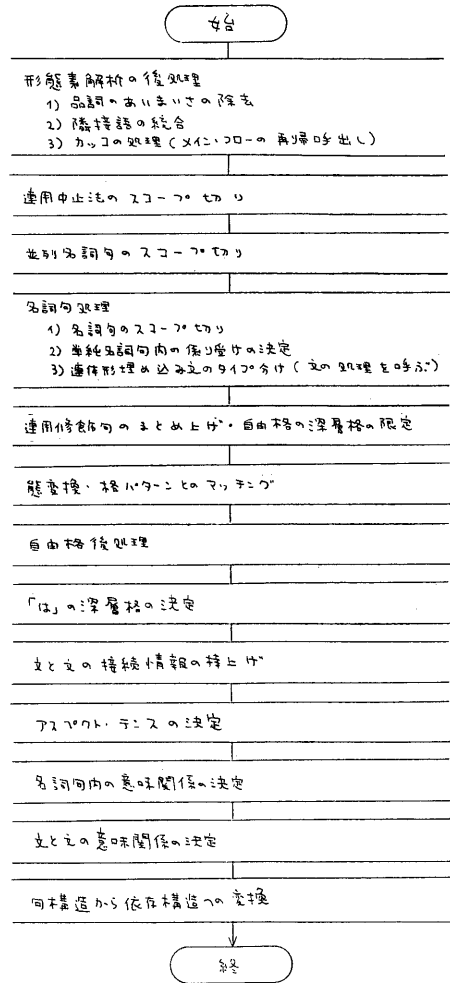 始
形態素解析の後処理
1) 品詞のあいまいさの除去
2) 隣接語の統合
3) カッコの処理 (メイン・フローの再帰呼出し)
連用中止法のスコープ切り
並列名詞句のスコープ切り
名詞句処理
1) 名詞句のスコープ切り
2) 単純名詞句内の係り受けの決定
3) 連体形埋め込み文のタイプ分け (文の処理を呼ぶ)
連用修飾句のまとめ上げ・自由格の深層格の限定
態変換・格パターンとのマッチング
自由格後処理
「は」の深層格の決定
文と文の接続情報の持上げ
アスペクト・テンスの決定
名詞句内の意味関係の決定
文と文の意味関係の決定
句構造から依存構造への変換
終